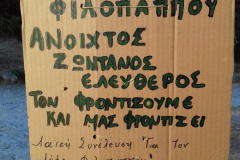 ΦΙΛΟΠΑΠΠΟΥ
ΑΝΟΙΧΤΟΣ
ΖΩΝΤΑΝΟΣ
ΕΛΕΥΘΕΡΟΣ
ΤΟΝ ΦΡΟΝΤΙΖΟΥΜΕ
ΚΑΙ ΜΑΣ ΦΡΟΝΤΙΖΕΙ
Λαϊκή Συνέλευση για τον